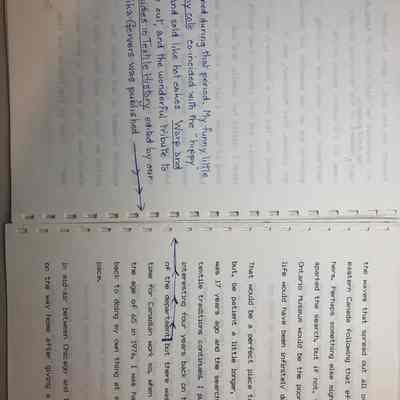 ed during that period. My funny little
co-incided with the "hippy
and sold like hot cakes. Warp and
out, and the wonderful tribute to
in Textile History edited by our
ika Gervers was published
the waves that spread out all
eastern Canada following that
here. Perhaps something else might
sparked the search, but if not,
Ontario Museum would be the poorer
life would have been infinitely
That would be a perfect place
but, be patient a little longer,
was 17 years ago and the search
textile traditions continues. I
interesting four years back on
of the department but there was
time for Canadian work so, when
the age of 65 in 1976, I was
back to doing my own thing at
place.
in mid-air between Chicago and
on the way home after giving a